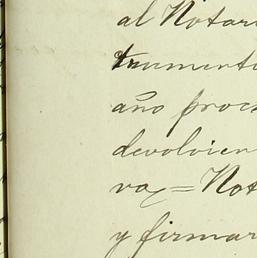 al Notari
trumento
año proce
devolvien
vax = Not
y firmar